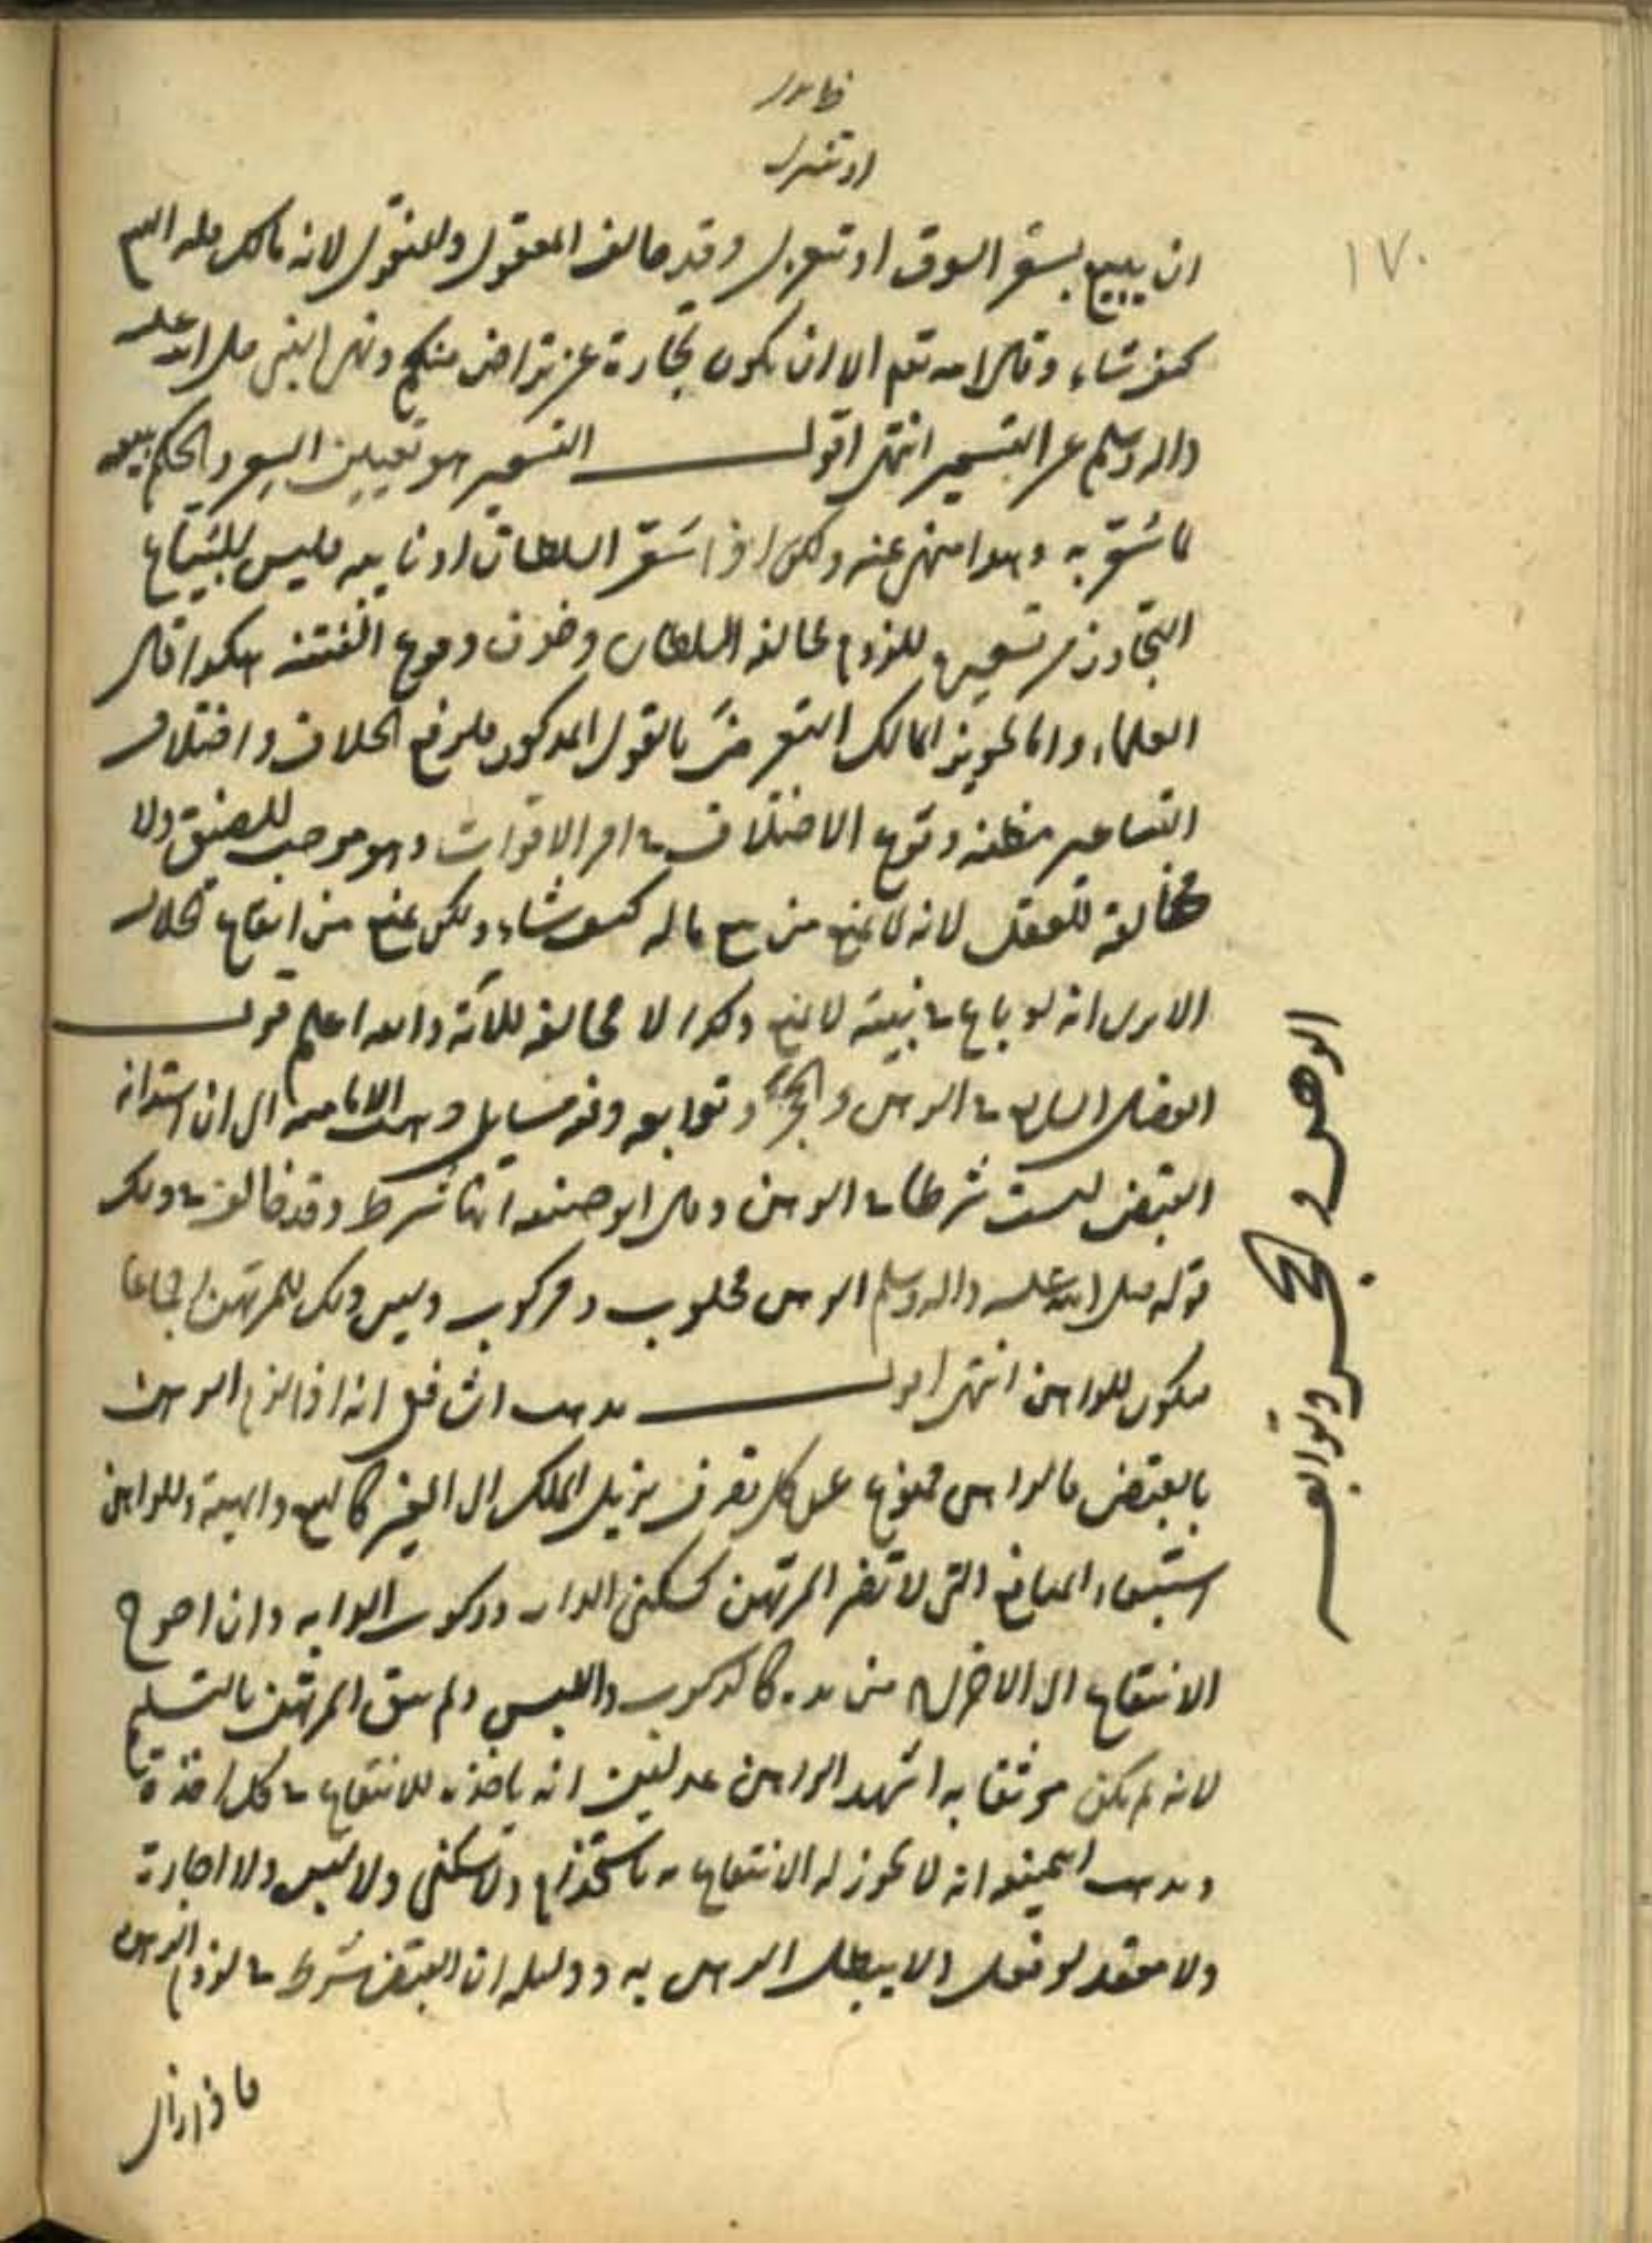 ظاهر
او تنزل
١٧٠
ان يبيع بسعر السوق او تعزل وقد خالف المعقول والمنقول لانه مالك فله البيع
كيف شاء وقال الله تعم الا ان يكون تجارة عن تراض منكم ونهى النبي صلى الله عليه
واله وسلم عن التسعير انتهى اقول التسعير هو تعيين السعر والحكم ببيعه
لما سعّر به وهذا منهي عنه ولكن اذا سعّر السلطان او نايبه فليس للبياع
التجاوز من تسعيره للزوم مخالفة السلطان وخوف وقوع الفتنة هكذا قال
العلماء واما تجويز المالك التعرض بالقول المذكور فلرفع الخلاف واختلاف
التساعير مظنه وقوع الاختلاف في امر الاقوات وهو موجب للضيق ولا
مخالفة للعقل لانه لا يمنع من بيع ماله كيف شاء ولكن يمنع من ايقاع الخلاف
الا يرى انه لو باع في بيته لا يمنع وكذا لا مخالفة للآية والله اعلم قوله
الفصل السابع في الرهن والحجر وتوابعه وفيه مسايل ذهبت الامامية الى ان استدامة
القبض ليست شرطا في الرهن وقال ابو حنيفه انها شرط وقد خالف في ذلك
قوله صلى الله عليه واله وسلم الرهن محلوب ومركوب وليس ذلك للمرتهن اجماعا
فيكون للراهن انتهى اقول مذهب الشافعي انه اذا لزم الرهن
بالقبض فالراهن ممنوع عن كل تصرف يزيل الملك الى الغير كالبيع والهبة وللراهن
استيفاء المنافع التي لا تضر المرتهن كسكنى الدار وركوب الدابه وان احوج
الانتفاع الى الاخراج من يده كالركوب واللبس ولم يثق المرتهن بالتسليم
لانه لم يكن موثقا به اشهد الراهن عدلين انه ياخذه للانتفاع في كل اخذة
ومذهب ابيحنيفه انه لا يجوز له الانتفاع به باستخدام ولا سكنى ولا لبس ولا اجارة
ولا يعقد لو فعل ولا يبطل الرهن به ودليله ان القبض شرط في لزوم الرهن
فاذا زال
الرهن والحجر وتوابعه